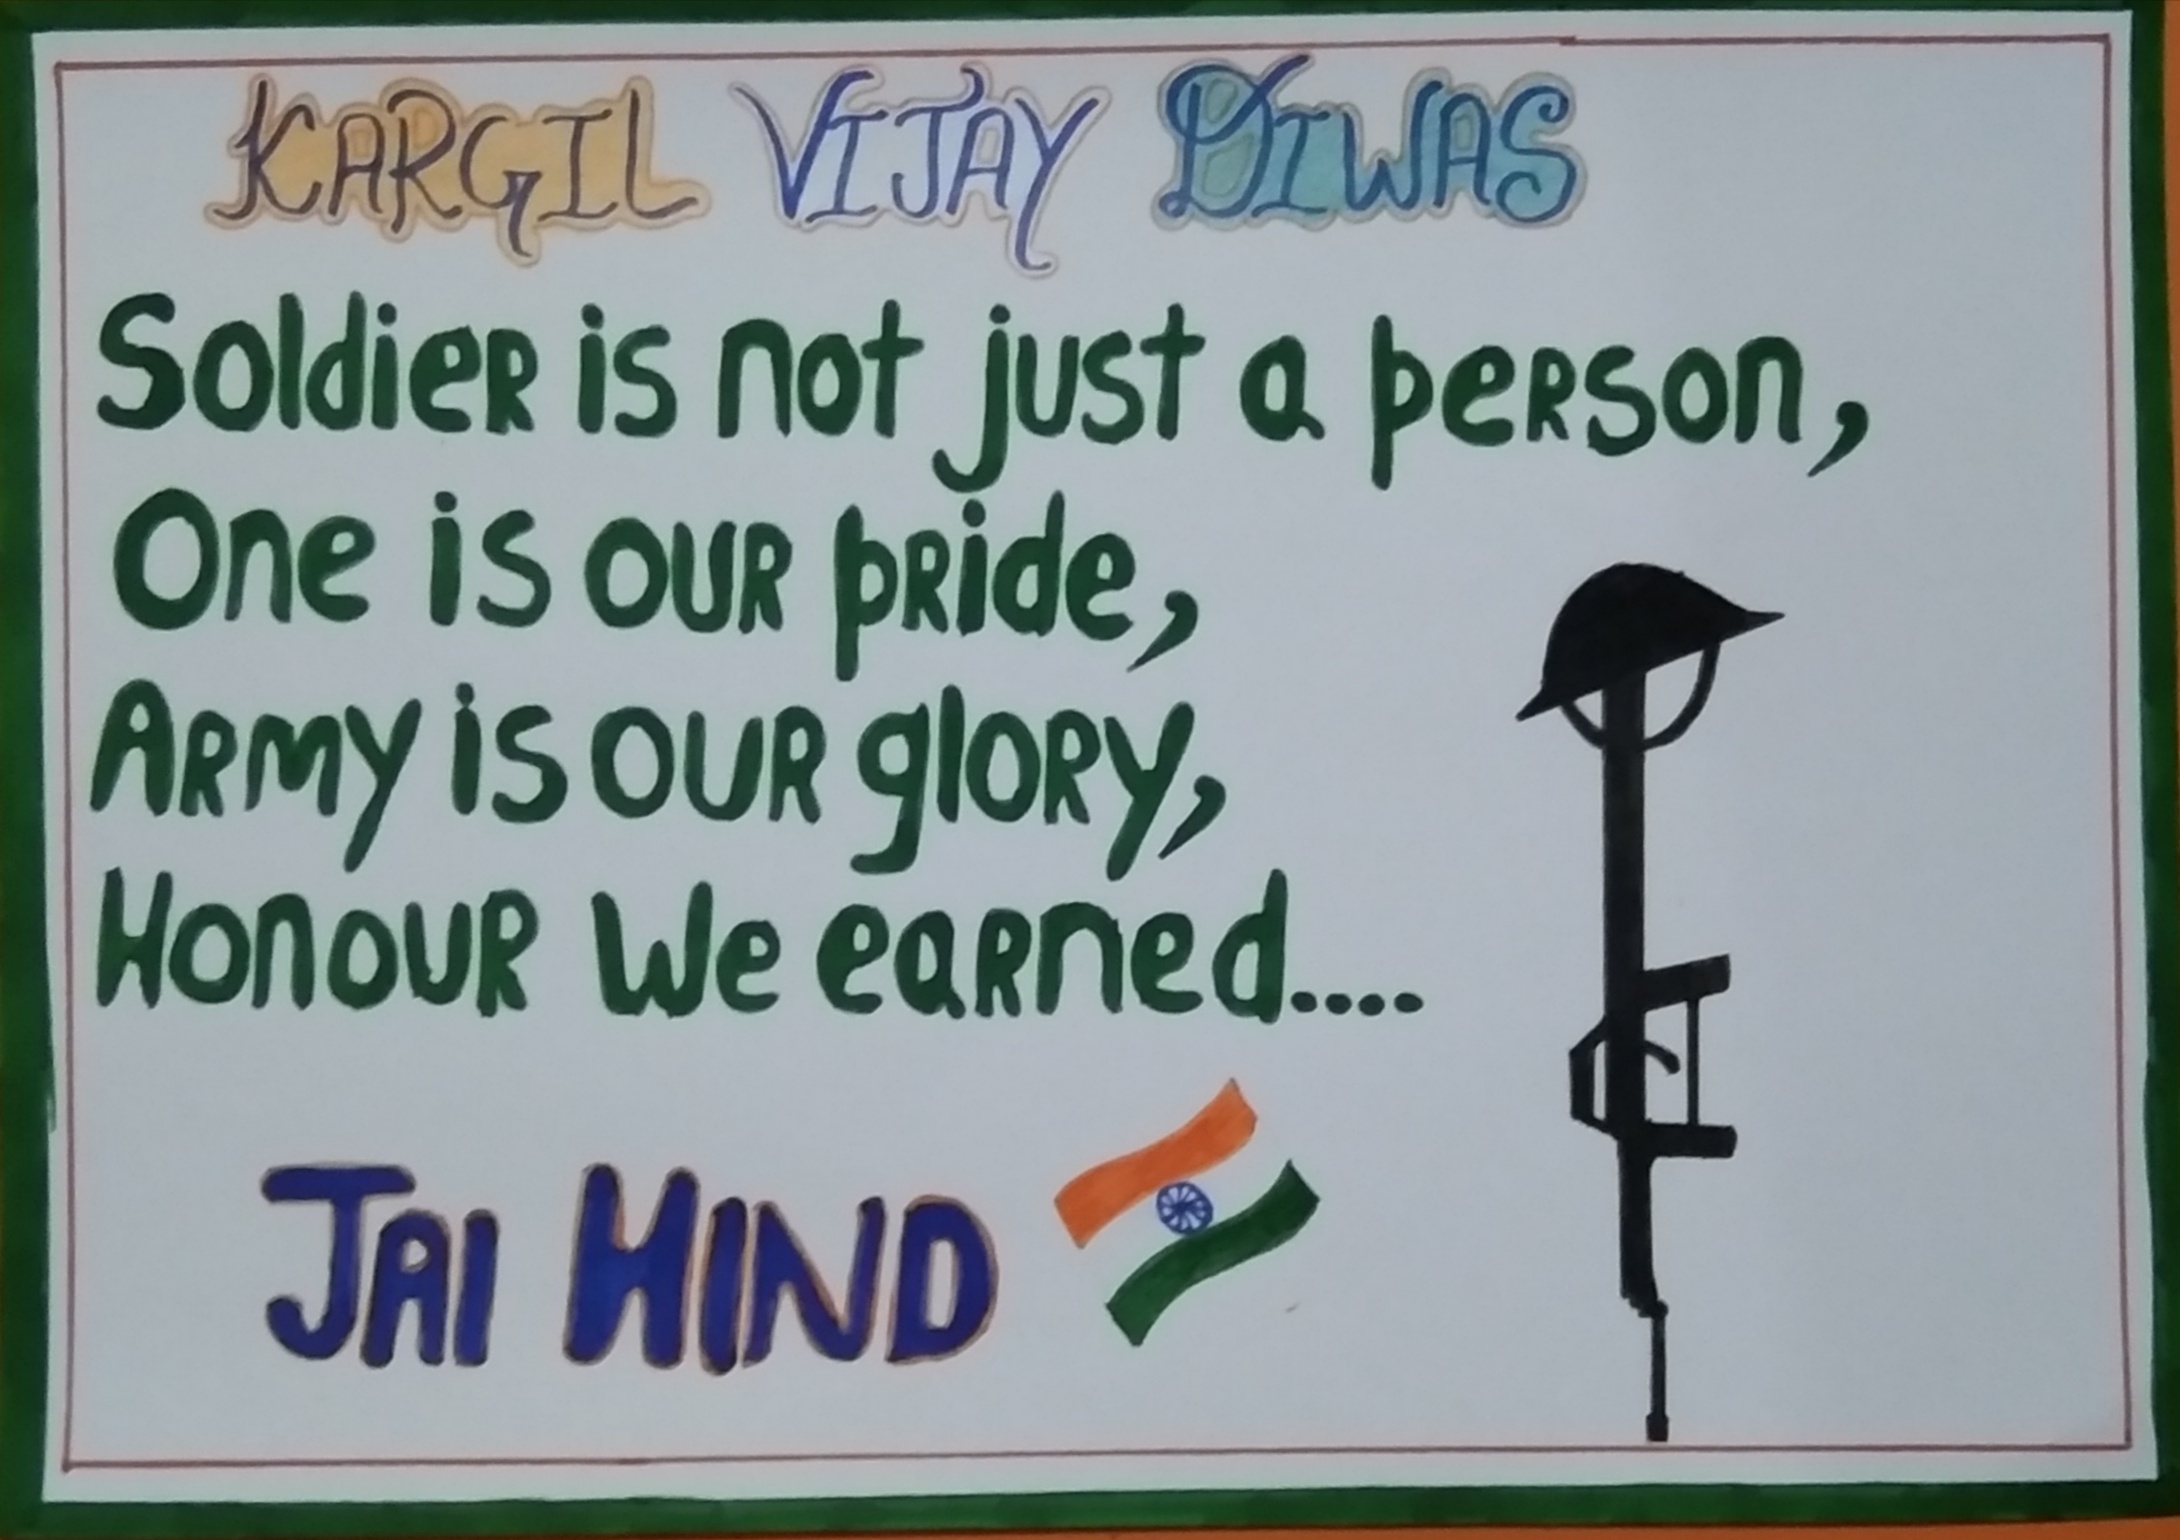 KARGIL VIJAY DIWAS
Soldier is not just a person,
One is our pride,
Army is our glory,
Honour We earned....
JAI HIND